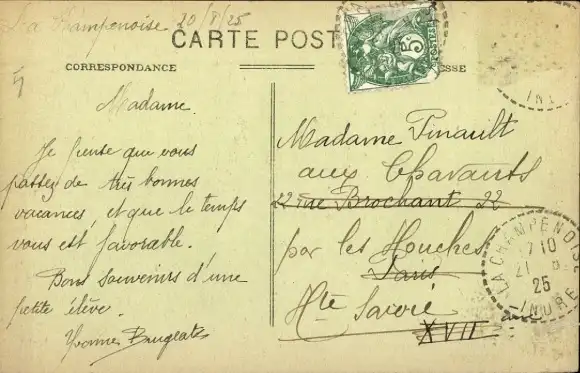 La Champenoise 20/8/25
CARTE POST
CORRESPONDANCE
ESSE
5c
Madame
Je pense que vous
passez de très bonnes
vacances, et que le temps
vous est favorable.
Bons souvenirs d'une
petite élève.
Yvonne
Madame Pinault
aux Chavants
22 rue Brochant 22
par les Houches
Paris
Hte Savoie
XVII
LA CHAMPENOISE
1710
21 8
25
INDRE